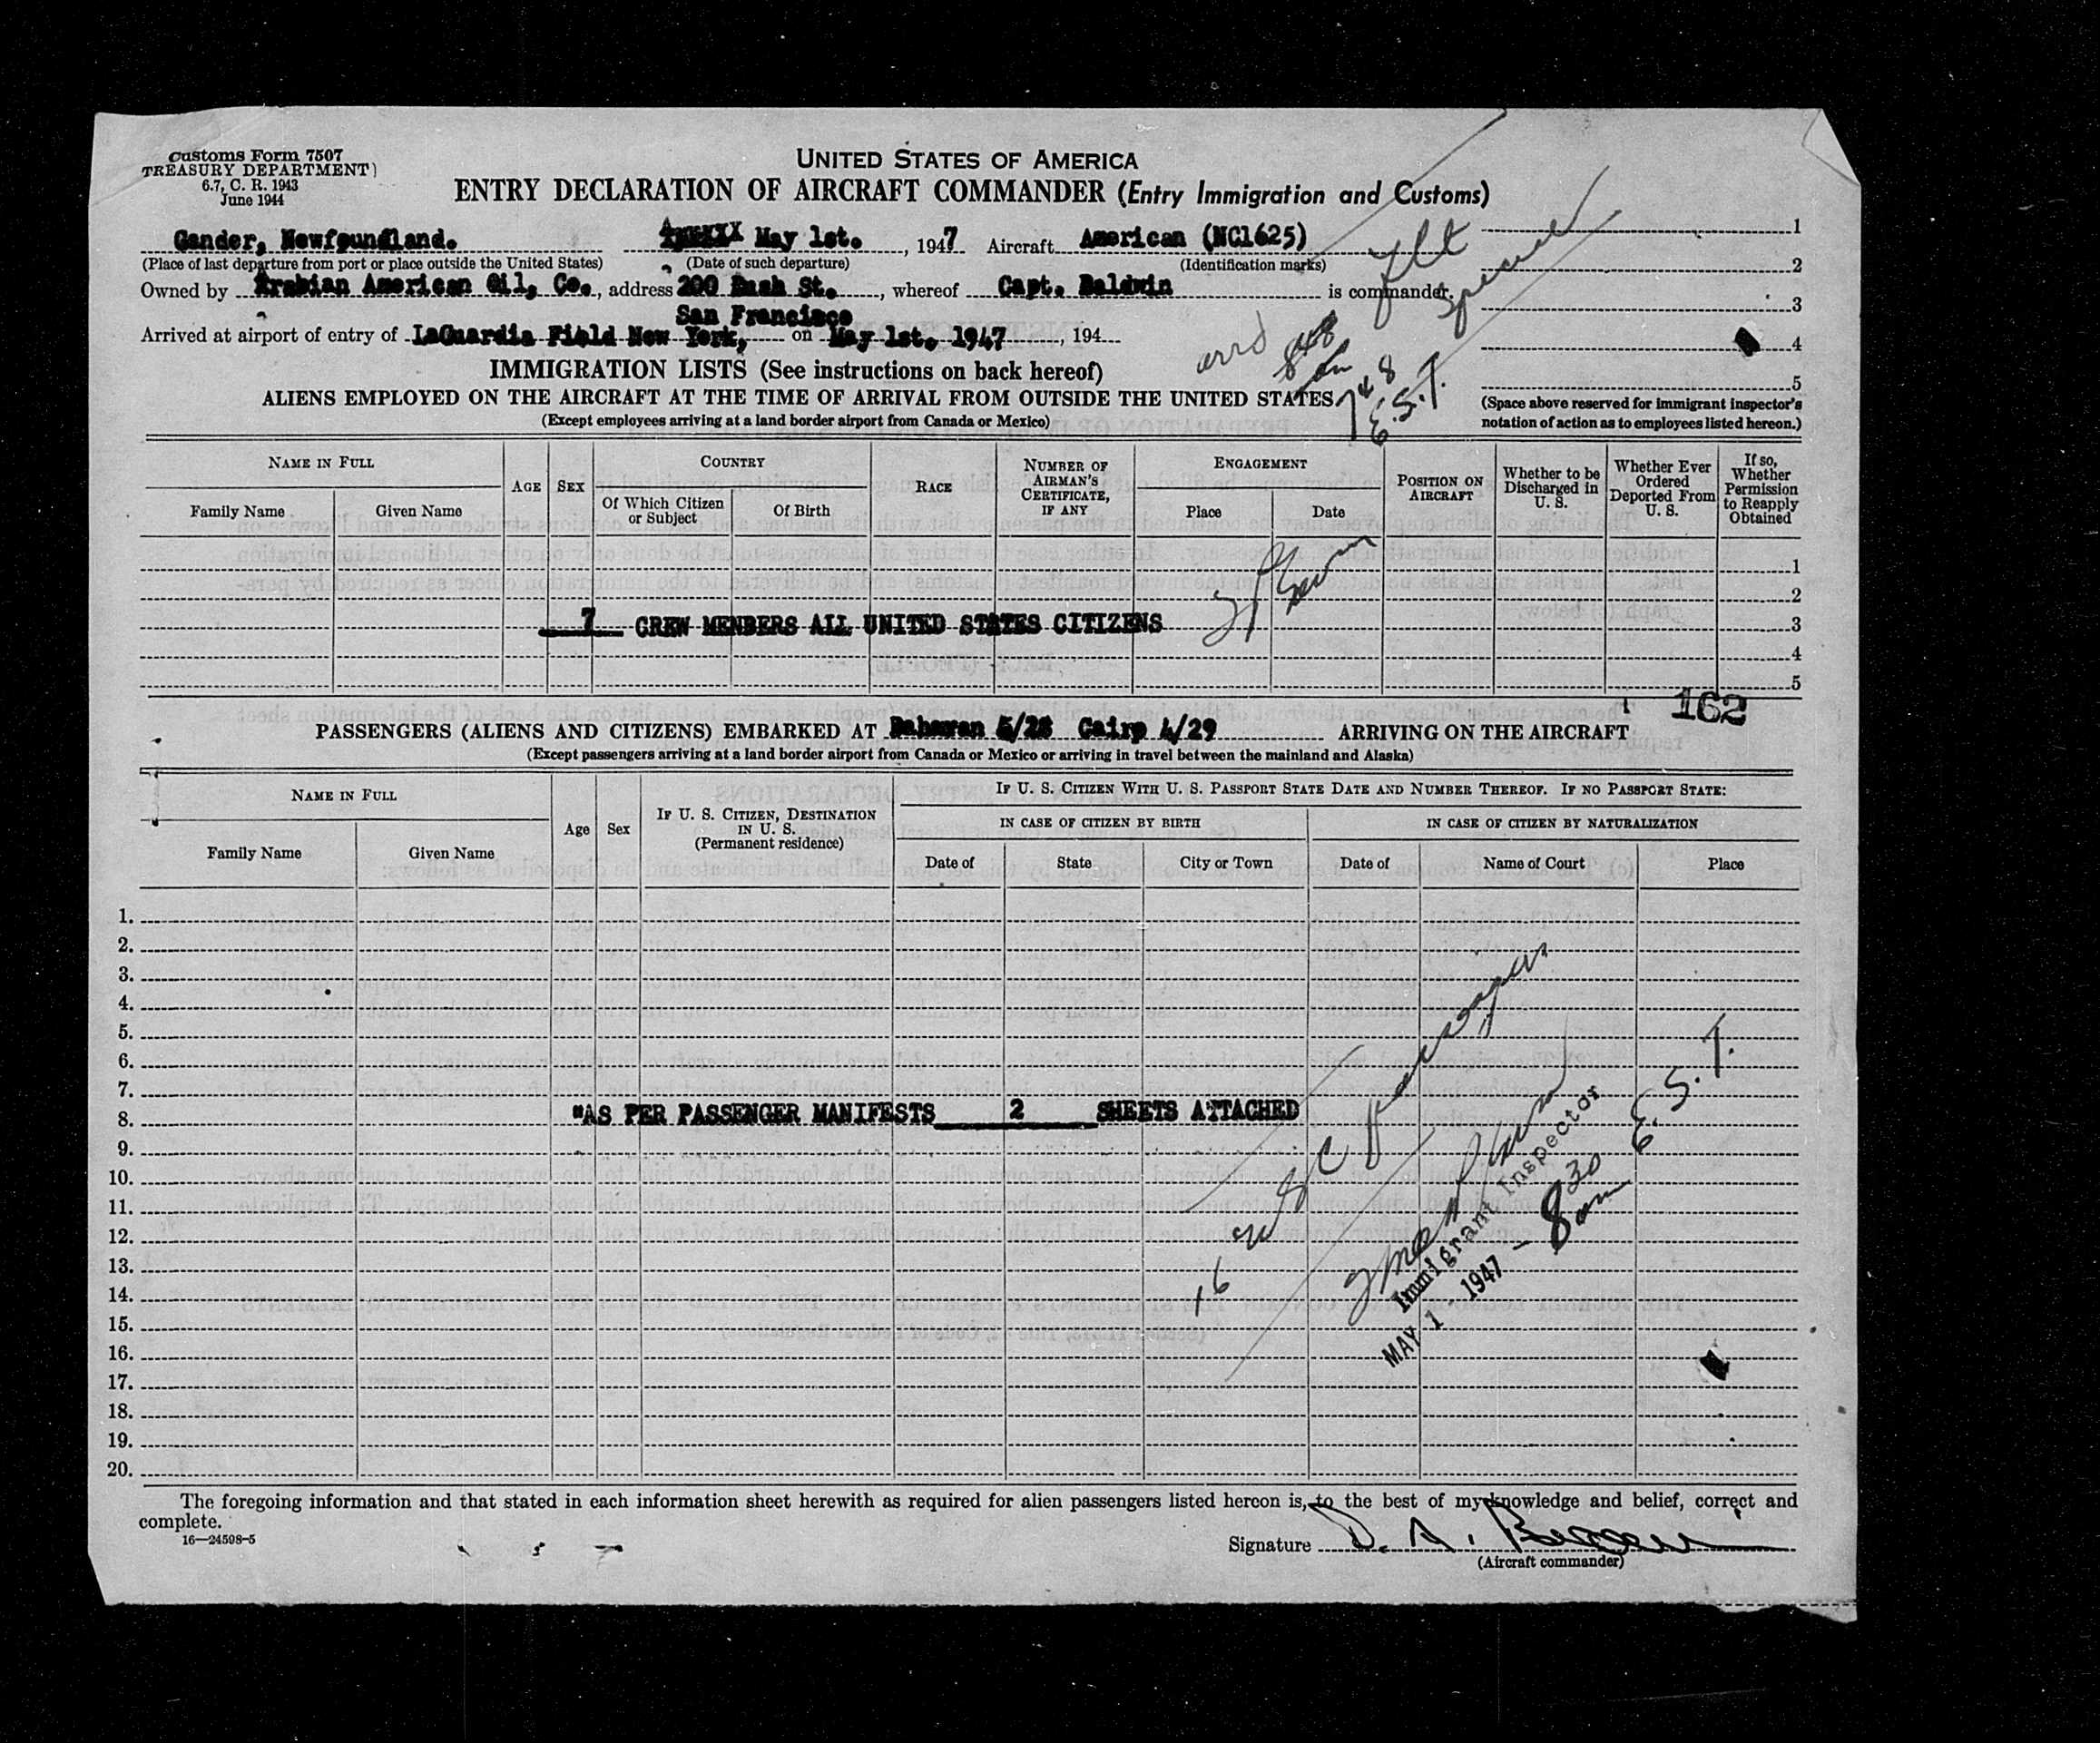 Customs Form 7507
TREASURY DEPARTMENT)
6.7, C. R. 1943
June 1944
UNITED STATES OF AMERICA
ENTRY DECLARATION OF AIRCRAFT COMMANDER (Entry Immigration and Customs)
Gander, Newfoundland. May 1st. , 1947 Aircraft American (NC1625)
(Place of last departure from port or place outside the United States) (Date of such departure) (Identification marks)
Owned by Arabian American Oil, Co. , address 200 Bush St. , whereof Capt. Baldwin is commander.
San Francisco
Arrived at airport of entry of LaGuardia Field New York, on May 1st. 1947 , 194
Flt
Special
arrd 848 am
748
E.S.T.
1
2
3
4
5
IMMIGRATION LISTS (See instructions on back hereof)
ALIENS EMPLOYED ON THE AIRCRAFT AT THE TIME OF ARRIVAL FROM OUTSIDE THE UNITED STATES
(Except employees arriving at a land border airport from Canada or Mexico)
(Space above reserved for immigrant inspector's
notation of action as to employees listed hereon.)
NAME IN FULL
Family Name Given Name
AGE
SEX
COUNTRY
Of Which Citizen or Subject
Of Birth
RACE
NUMBER OF AIRMAN'S CERTIFICATE, IF ANY
ENGAGEMENT
Place Date
POSITION ON AIRCRAFT
Whether to be Discharged in U. S.
Whether Ever Ordered Deported From U. S.
If so, Whether Permission to Reapply Obtained
1
2
7 CREW MENBERS ALL UNITED STATES CITIZENS 3
4
5
162
PASSENGERS (ALIENS AND CITIZENS) EMBARKED AT Cairo 4/29 ARRIVING ON THE AIRCRAFT
(Except passengers arriving at a land border airport from Canada or Mexico or arriving in travel between the mainland and Alaska)
NAME IN FULL
Family Name Given Name
Age
Sex
IF U. S. CITIZEN, DESTINATION IN U. S.
(Permanent residence)
IF U. S. CITIZEN WITH U. S. PASSPORT STATE DATE AND NUMBER THEREOF. IF NO PASSPORT STATE:
IN CASE OF CITIZEN BY BIRTH IN CASE OF CITIZEN BY NATURALIZATION
Date of State City or Town Date of Name of Court Place
1.
2.
3.
4.
5.
6.
7.
8. "AS PER PASSENGER MANIFESTS 2 SHEETS ATTACHED
9.
10.
11.
12.
13.
14.
15.
16.
17.
18.
19.
20.
16 USC Passengers
Immigrant Inspector
MAY 1 - 1947 - 8 30 am E.S.T.
The foregoing information and that stated in each information sheet herewith as required for alien passengers listed hereon is, to the best of my knowledge and belief, correct and
complete.
16—24598-5
Signature
(Aircraft commander)